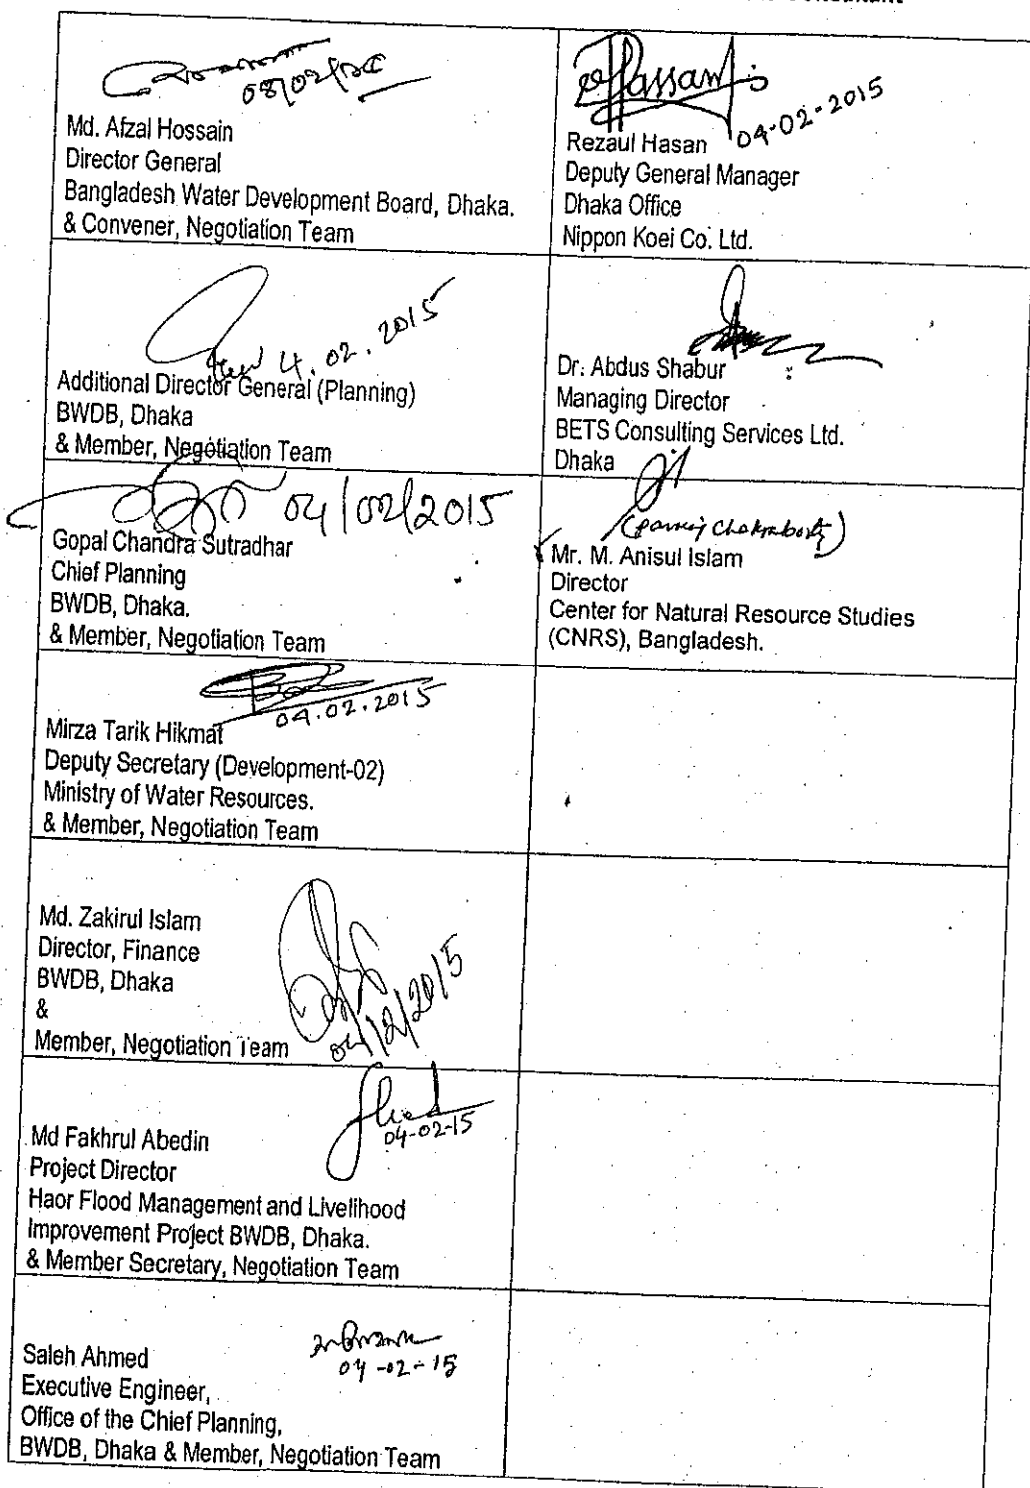 Consultant
০৪/০২/১৫
Md. Afzal Hossain
Director General
Bangladesh Water Development Board, Dhaka.
& Convener, Negotiation Team
Hassan
04-02-2015
Rezaul Hasan
Deputy General Manager
Dhaka Office
Nippon Koei Co. Ltd.
4.02.2015
Additional Director General (Planning)
BWDB, Dhaka
& Member, Negotiation Team
Dr. Abdus Shabur
Managing Director
BETS Consulting Services Ltd.
Dhaka
04/02/2015
Gopal Chandra Sutradhar
Chief Planning
BWDB, Dhaka.
& Member, Negotiation Team
Mr. M. Anisul Islam
Director
Center for Natural Resource Studies
(CNRS), Bangladesh.
04.02.2015
Mirza Tarik Hikmat
Deputy Secretary (Development-02)
Ministry of Water Resources.
& Member, Negotiation Team
Md. Zakirul Islam
Director, Finance
BWDB, Dhaka
&
Member, Negotiation Team
04/12/2015
04-02-15
Md Fakhrul Abedin
Project Director
Haor Flood Management and Livelihood
Improvement Project BWDB, Dhaka.
& Member Secretary, Negotiation Team
04-02-15
Saleh Ahmed
Executive Engineer,
Office of the Chief Planning,
BWDB, Dhaka & Member, Negotiation Team